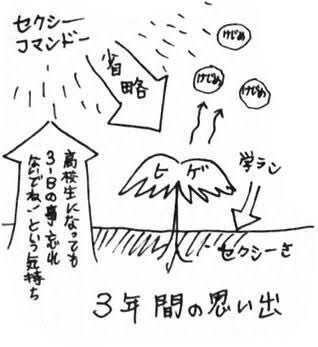 セクシー
コマンドー
省略
けじめ
けじめ
けじめ
ヒゲ
学ラン
高校生になっても
3-Bの事忘れ
ないでね!という気持ち
セクシーさ
3年間の思い出